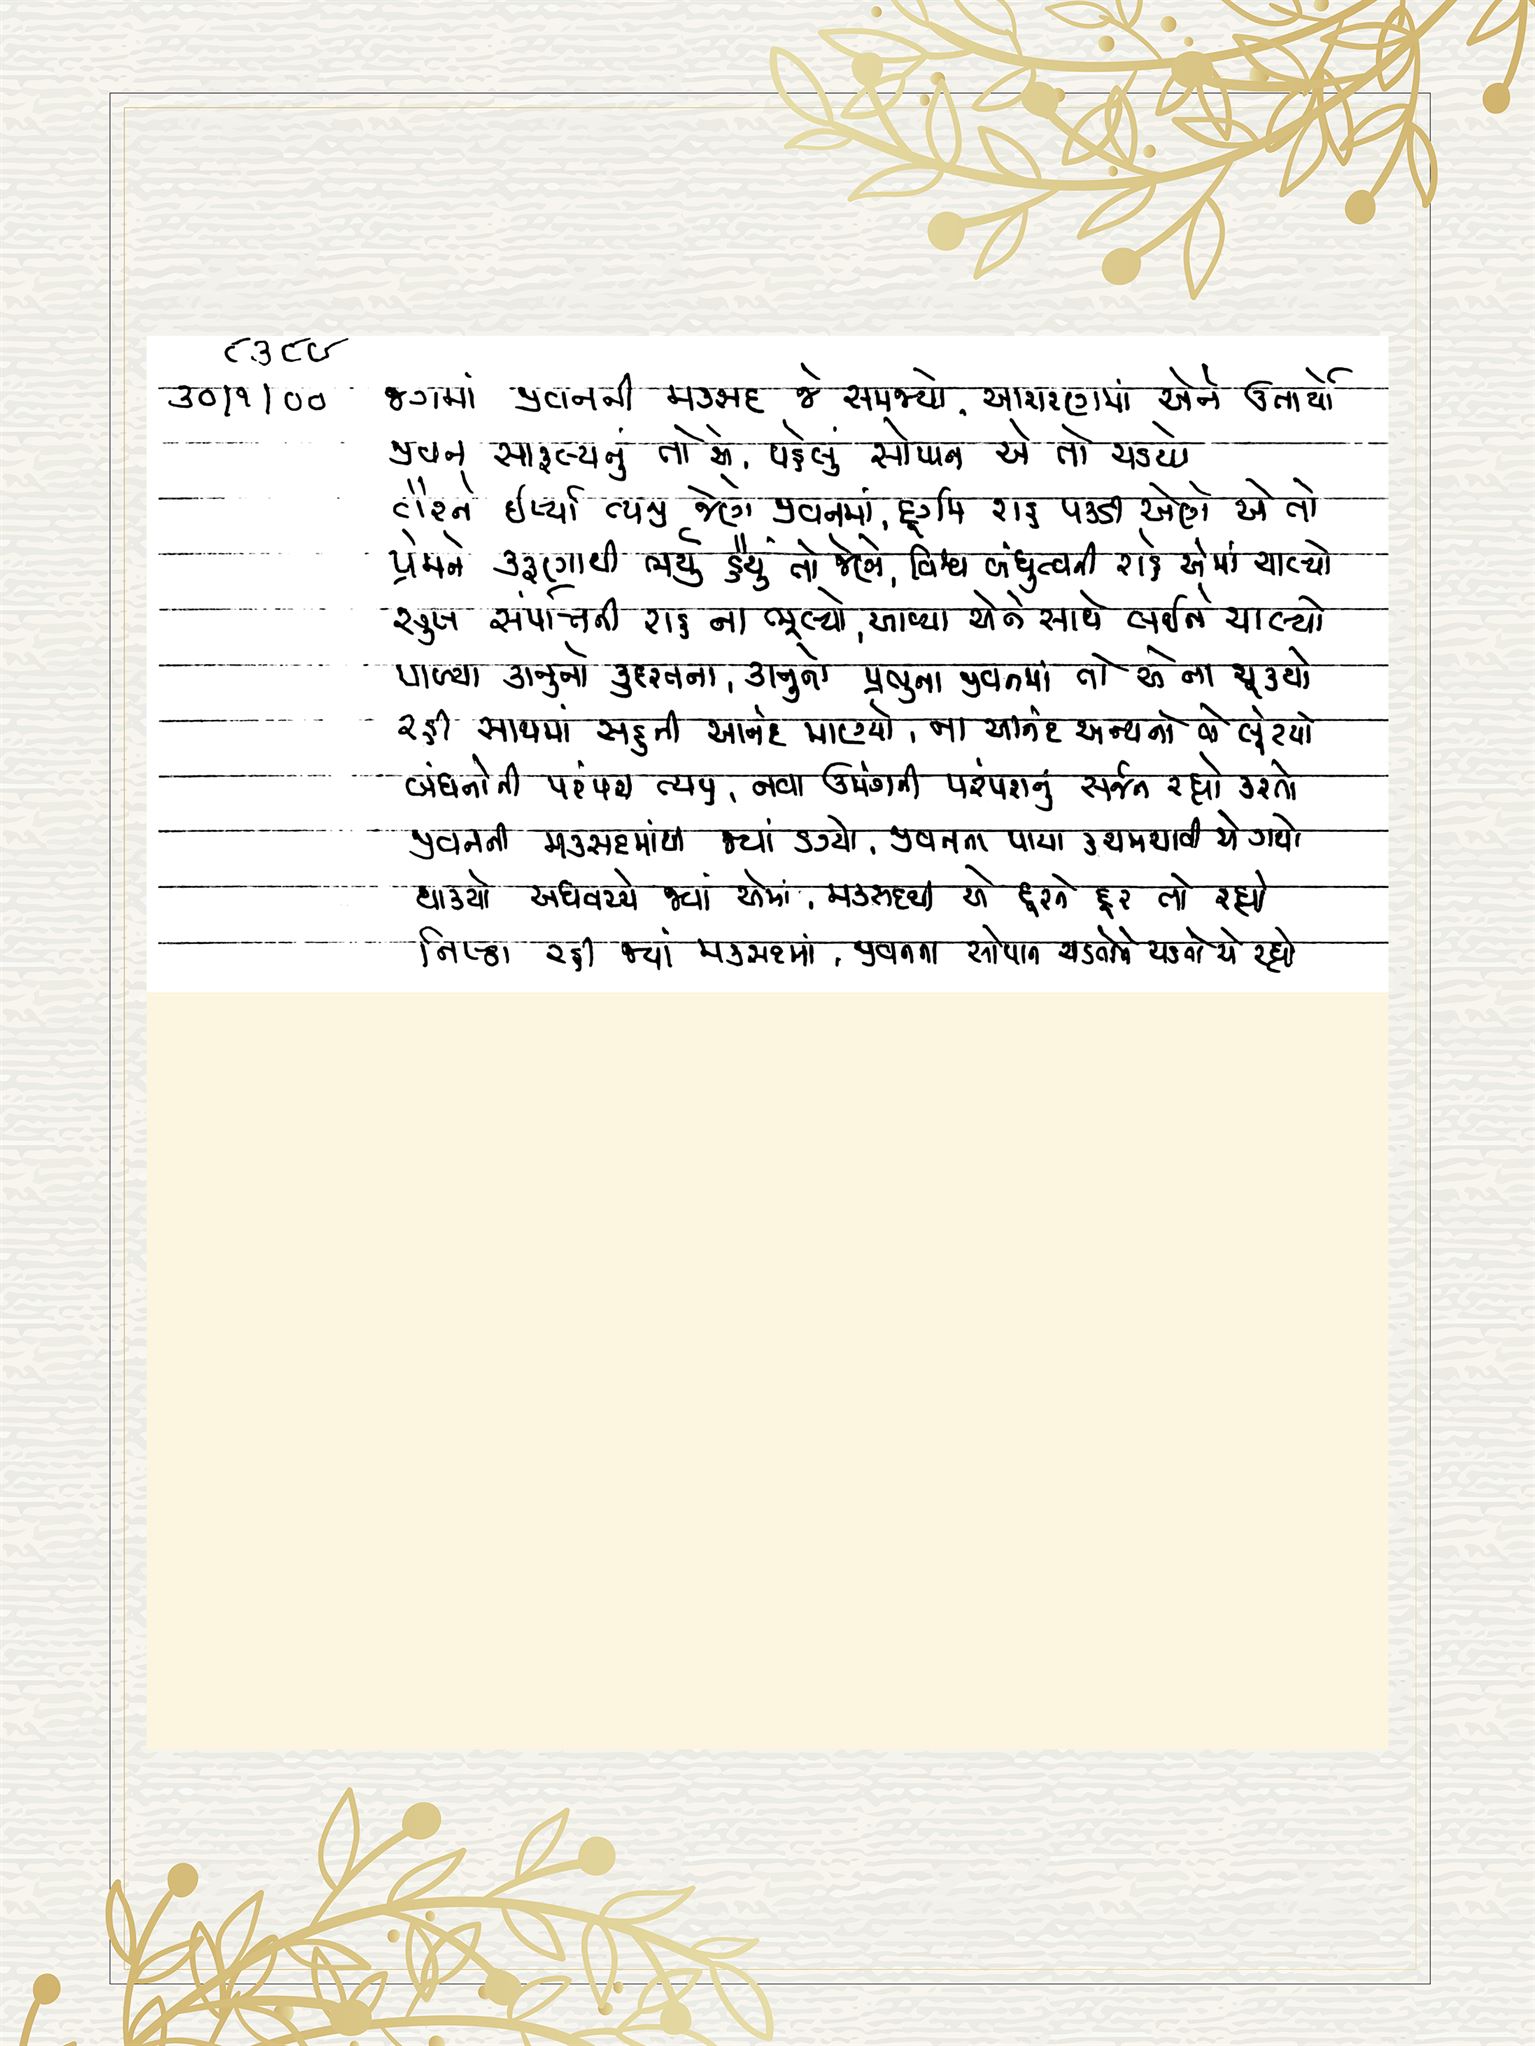 ૮૩૮૪
૩૦/૧/૦૦ જગમાં જીવનની મકસદ જે સમજ્યો, આચરણમાં એને ઉતાર્યો
જીવન સાફલ્યનું તો એ, પહેલું સોપાન એ તો ચડયો
વૈરને ઈર્ષ્યા ત્યજી જેણે જીવનમાં, દૂર્ગમ રાહ પકડી એણે એ તો
પ્રેમને કરૂણાથી ભર્યું હૈયું તો જેણે, વિશ્વ બંધુત્વની રાહે એમાં ચાલ્યો
સુખ સંપત્તિની રાહ ના ભૂલ્યો, આવ્યા એને સાથે લઈને ચાલ્યો
પાળ્યા કાનુનો કુદરતના, કાનુનો પ્રભુના જીવનમાં તો એ ના ચૂકયો
રહી સાથમાં સહુની આનંદ માણ્યો, ના આનંદ અન્યનો એ લૂંટયો
બંધનોની પરંપરા ત્યજી, નવા ઉમંગની પરંપરાનું સર્જન રહ્યો કરતો
જીવનની મકસદમાંથી જ્યાં ડગ્યો, જીવનના પાયા કચમચાવી એ ગયો
થાકયો અધવચ્ચે જ્યાં એમાં, મકસદથી એ દૂરને દૂર તો રહ્યો
નિષ્ઠા રહી જ્યાં મકસદમાં, જીવનના સોપાન ચડતોને ચડતો એ રહ્યો